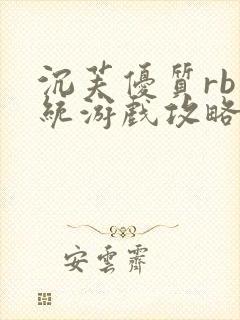 沉芙優質rb系
統游戲攻略
安雲霽